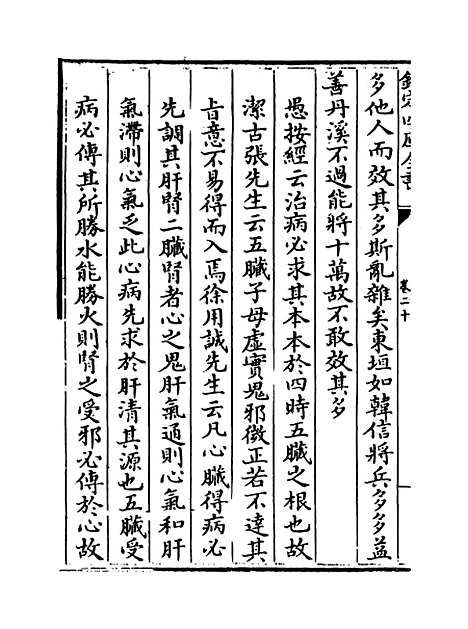 欽定四庫全書
卷二十
多他人而效其多斯亂雜矣東垣如韓信將兵多多益
善丹溪不過能將十萬故不敢效其多
愚按經云治病必求其本本於四時五臟之根也故
潔古張先生云五臟子母虛實鬼邪微正若不達其
旨意不易得而入焉徐用誠先生云凡心臟得病必
先調其肝腎二臟腎者心之鬼肝氣通則心氣和肝
氣滯則心氣乏此心病先求於肝清其源也五臟受
病必傳其所勝水能勝火則腎之受邪必傳於心故